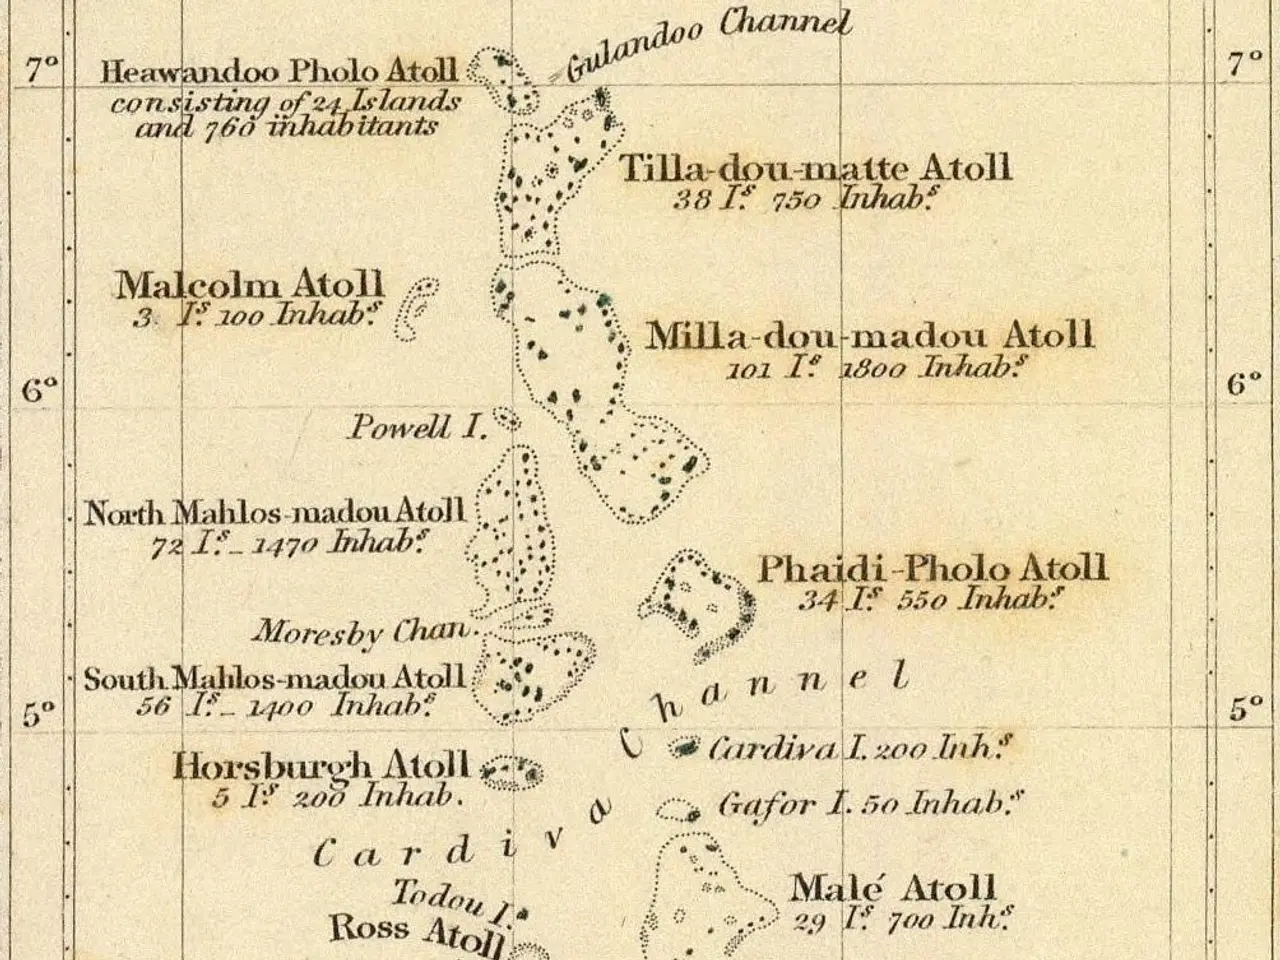 Gulandoo Channel
7° 7°
Heawandoo Pholo Atoll
consisting of 24 Islands
and 760 inhabitants
Tilla-dou-matte Atoll
38 Is. 750 Inhabs.
Malcolm Atoll
3 Is. 100 Inhabs.
Milla-dou-madou Atoll
101 Is. 1800 Inhabs.
6° 6°
Powell I.
North Mahlos-madou Atoll
72 Is. - 1470 Inhabs.
Phaidi-Pholo Atoll
34 Is. 550 Inhabs.
Moresby Chan.
South Mahlos-madou Atoll
56 Is. - 1400 Inhabs.
5° 5°
Cardiva Channel
Cardiva I. 200 Inhs.
Horsburgh Atoll
5 Is. 200 Inhab.
Gafor I. 50 Inhabs.
Todou I.
Malé Atoll
29 Is. 700 Inhs.
Ross Atoll